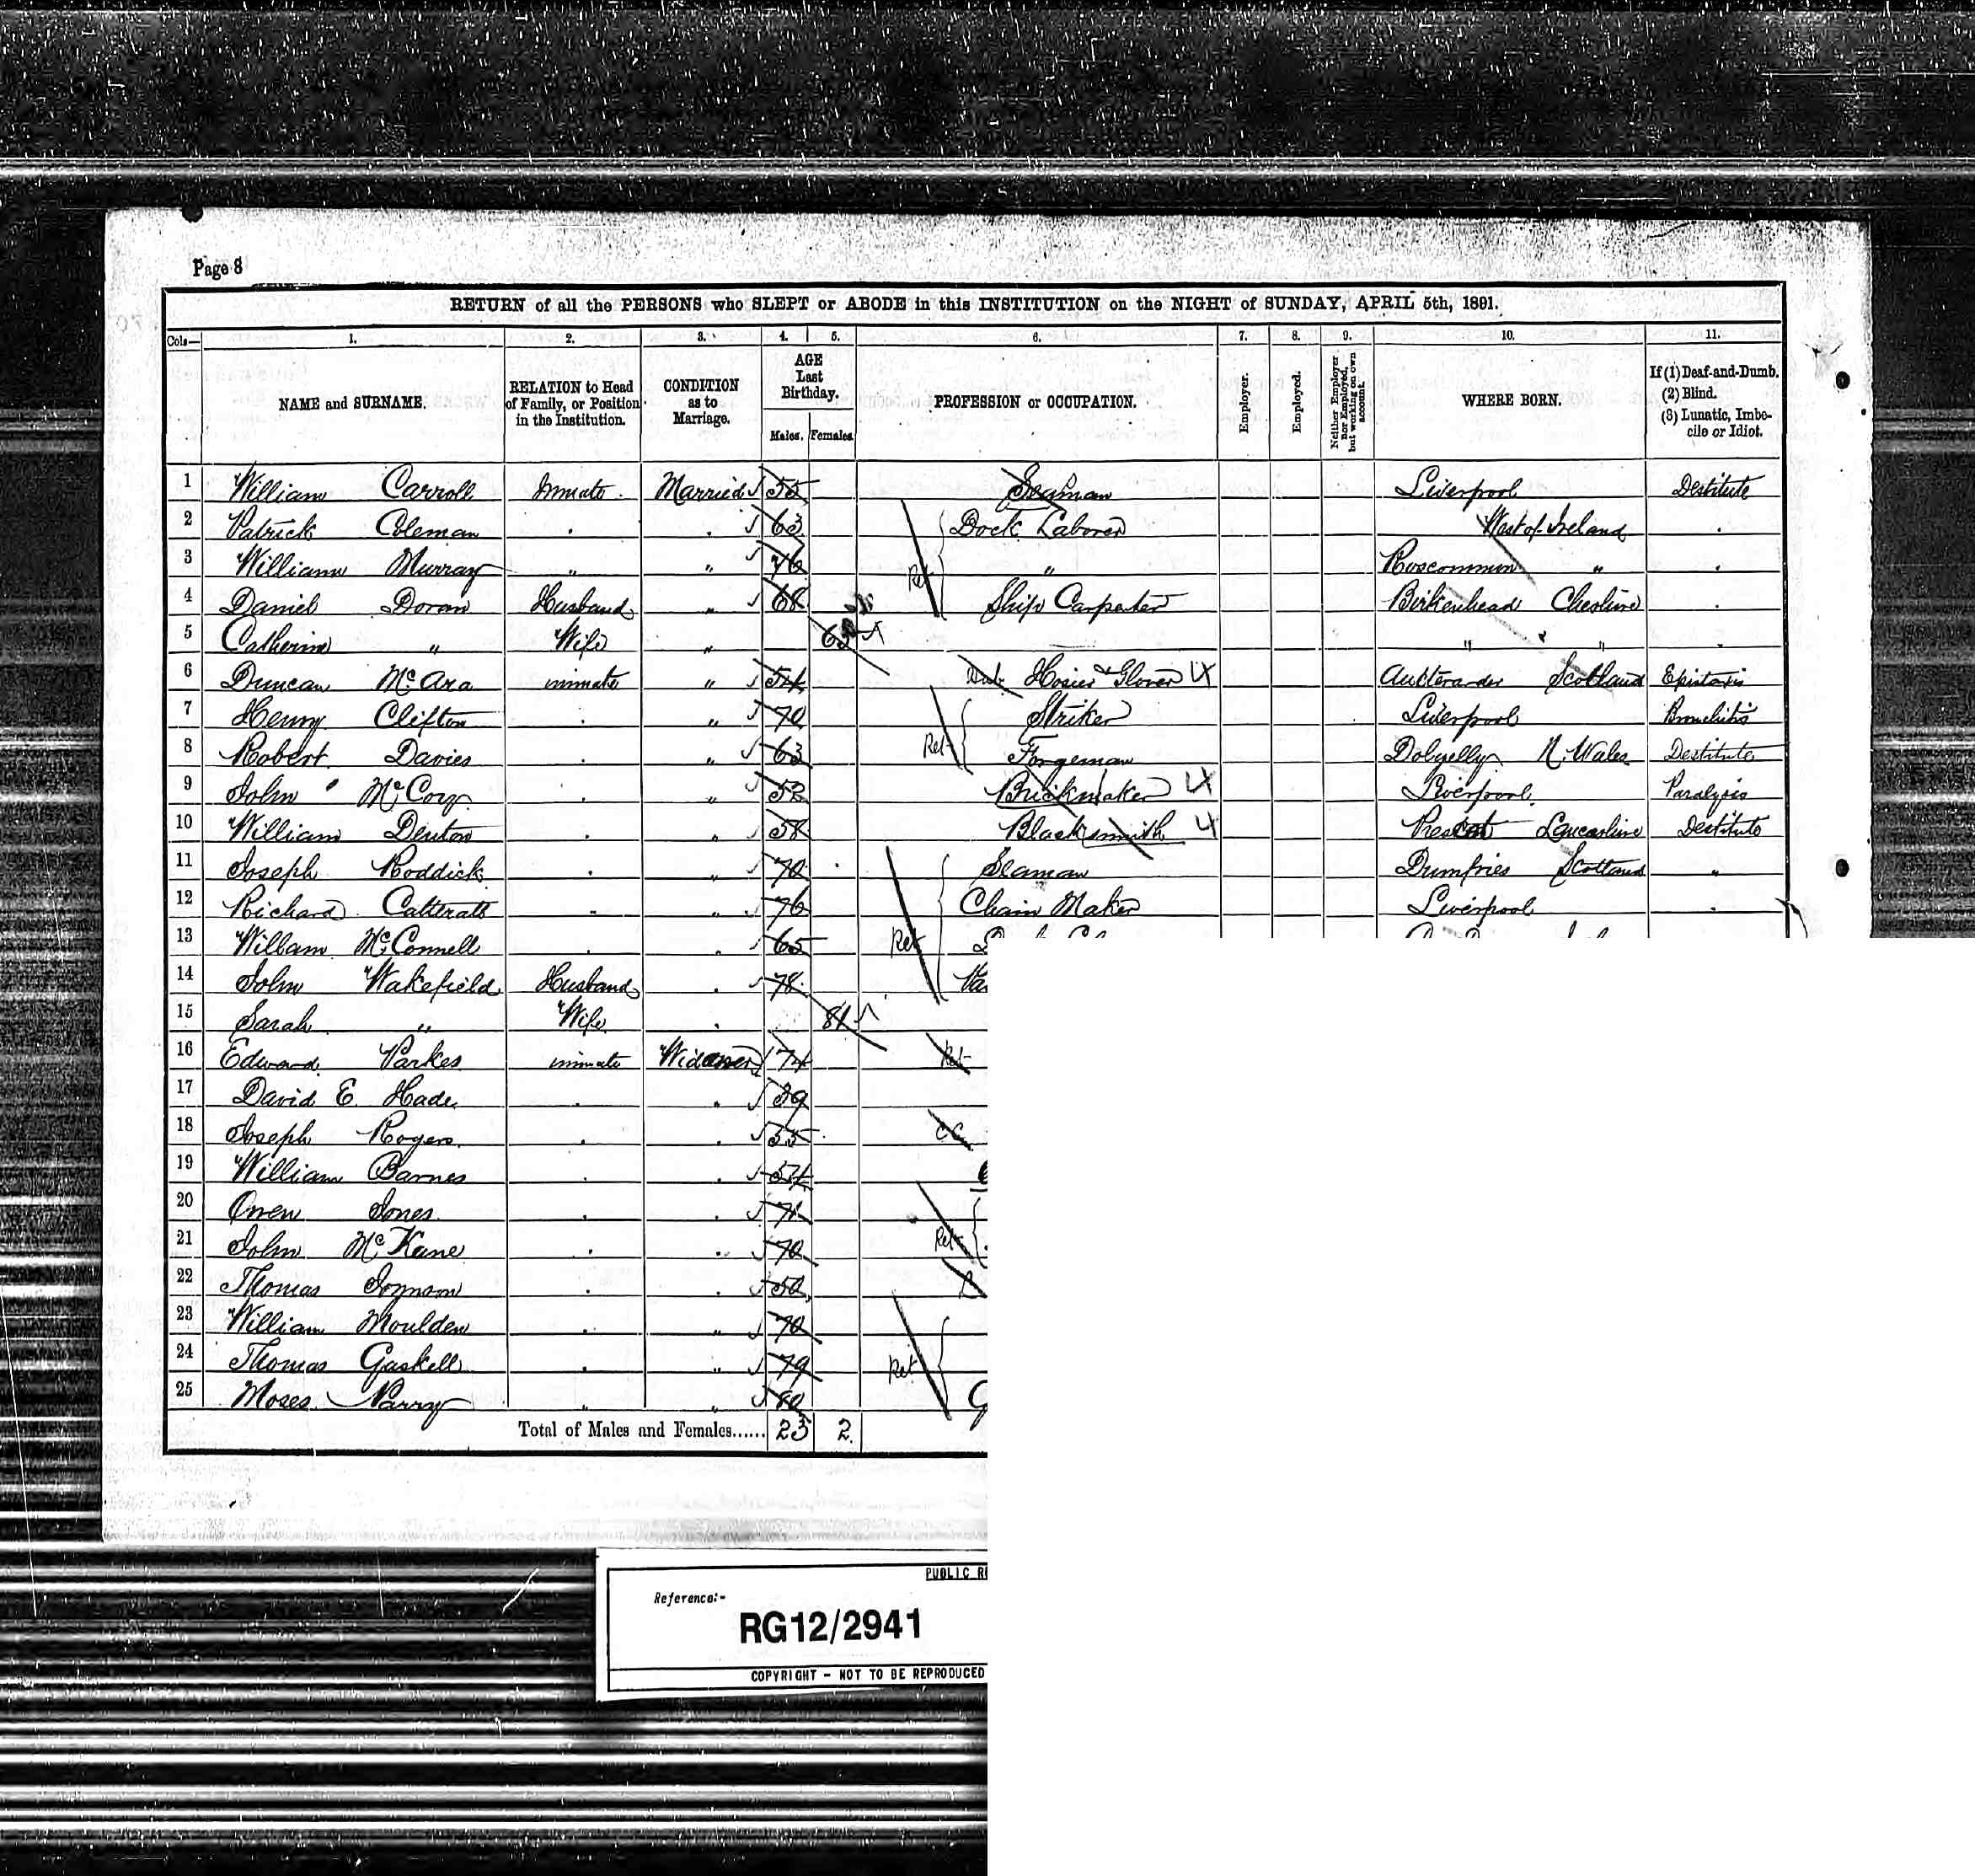 Page 8
RETURN of all the PERSONS who SLEPT or ABODE in this INSTITUTION on the NIGHT of SUNDAY, APRIL 5th, 1891.
Cols— 1. 2. 3. 4. 5. 6. 7. 8. 9. 10. 11.
NAME and SURNAME.
RELATION to Head of Family, or Position in the Institution.
CONDITION as to Marriage.
AGE Last Birthday.
Males. Females.
PROFESSION or OCCUPATION.
Employer.
Employed.
Neither Employer nor Employed, but working on own account.
WHERE BORN.
If (1) Deaf-and-Dumb. (2) Blind. (3) Lunatic, Imbecile or Idiot.
1 William Carroll Inmate Married 55 Seaman Liverpool Destitute
2 Patrick Coleman . . 63 Dock Laborer West of Ireland .
3 William Murray " " 76 " Roscommon " .
4 Daniel Doran Husband " 68 Ret Ship Carpenter Birkenhead Cheshire .
5 Catherine " Wife " " " .
6 Duncan McAra inmate " 54 Hosier & Glover 4 Scotland Epistaxis
7 Henry Clifton . " 70 Striker Liverpool Bronchitis
8 Robert Davies . " 63 Ret Forgeman Dolgelly N. Wales Destitute
9 John McCoy . " 52 Brickmaker 4 Liverpool. Paralysis
10 William Denton . " 58 Blacksmith 4 Prescot Lancashire Destitute
11 Joseph Roddick . " 70 Seaman Dumfries Scotland "
12 Richard Catterall " " 76 Chain Maker Liverpool .
13 William McConnell . . 65 Ret
14 John Wakefield Husband . 78
15 Sarah " Wife . 81
16 Edward Parkes inmate Widower 74 Ret
17 David E. Hade . . 39
18 Joseph Rogers . . 55
19 William Barnes . . 54
20 Owen Jones . . 71
21 John McKane . " 70 Ret
22 Thomas . . 50
23 William Moulden . " 70
24 Thomas Gaskell . " 79 Ret
25 Moses Parry " " 80
Total of Males and Females...... 23 2.
PUBLIC
Reference:-
RG12/2941
COPYRIGHT - NOT TO BE REPRODUCED